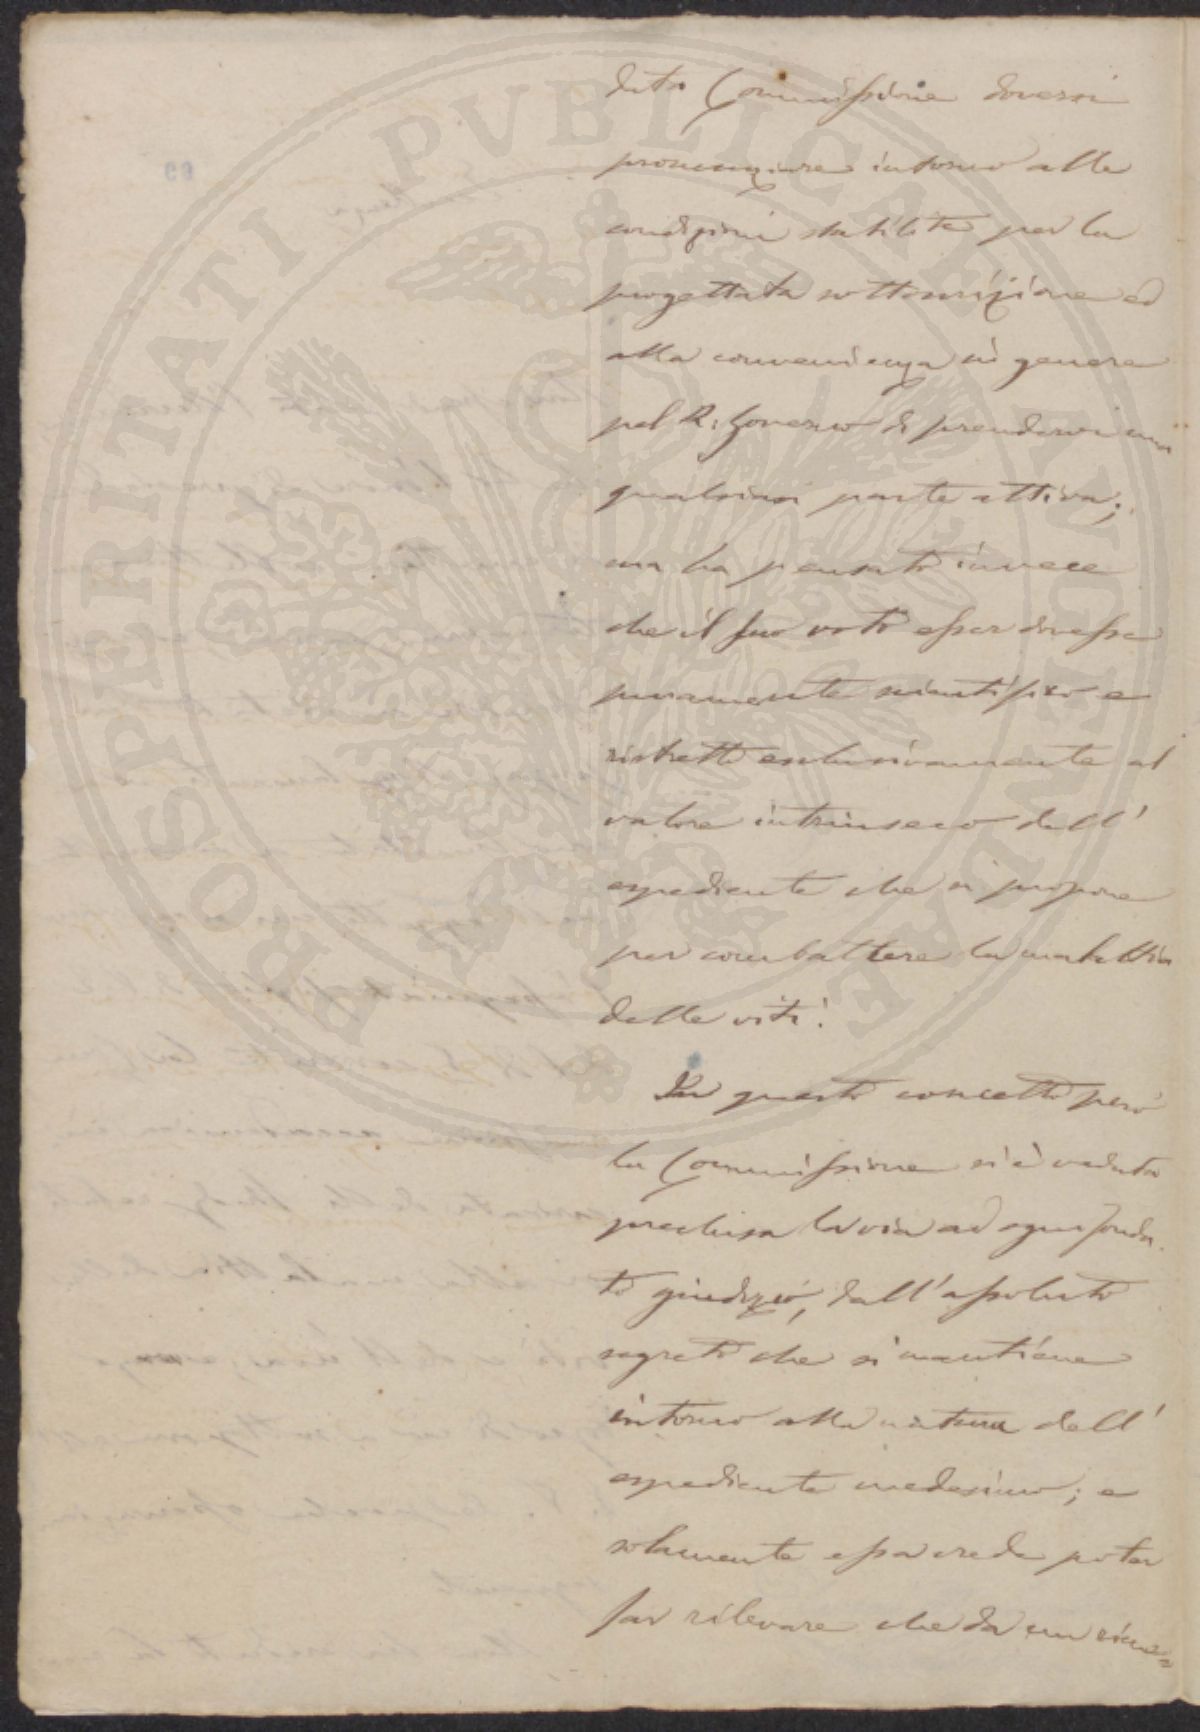 PROSPERITATI PVBLICAE AVGENDAE
data Commissione doversi
pronunziare intorno alle
condizioni stabilite per la
progettata sottoscrizione ed
alla convenienza in genere
pel R. Governo di prendervi una
qualsiasi parte attiva;
ma ha pensato invece
che il suo voto esser dovesse
puramente scientifico e
ristretto esclusivamente al
valore intrinseco dell'
espediente che si propone
per combattere la malattia
delle viti.
In questo concetto però
la Commissione si è veduta
preclusa la via ad ogni fonda-
to giudizio, dall'assoluto
segreto che si mantiene
intorno alla natura dell'
espediente medesimo; e
solamente essa crede poter
far rilevare che da un rime-